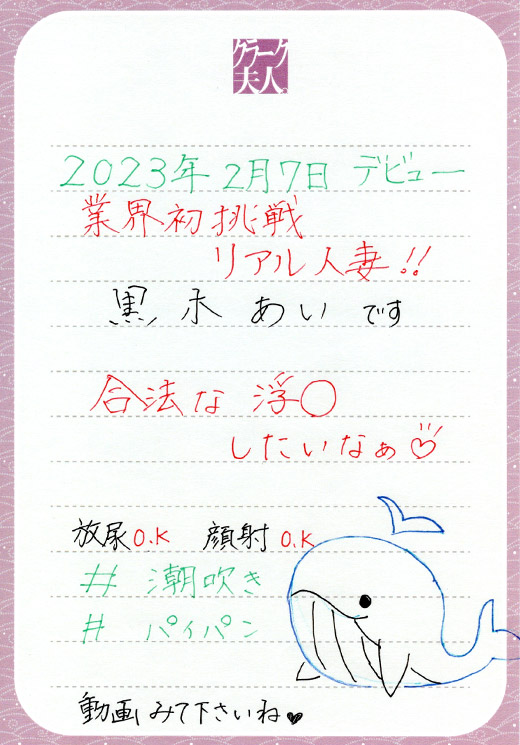 クラーク
夫人。
2023年 2月7日 デビュー
業界初挑戦
リアル人妻!!
黒木 あい です
合法な 浮〇
したいなぁ♡
放尿O.K 顔射O.K
# 潮吹き
# パイパン
動画みて下さいね♥